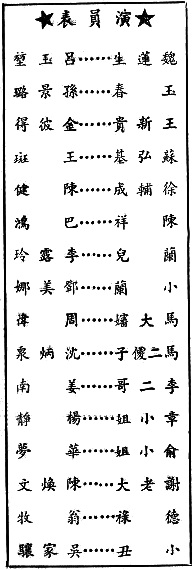 ★演員表★
魏蓮生……呂玉堃
玉春……孫景璐
王新貴……金彼得
蘇弘基……王斑
徐輔成……陳健
陳祥……巴鴻
蘭兒……李露玲
小蘭……鄧美娜
馬大嬸……周偉
馬二儍子……沈炳泉
李二哥……姜南
章小姐……楊靜
俞小姐……華夢
謝老大……陳煥文
德祿……翁牧
小丑……吳家驤